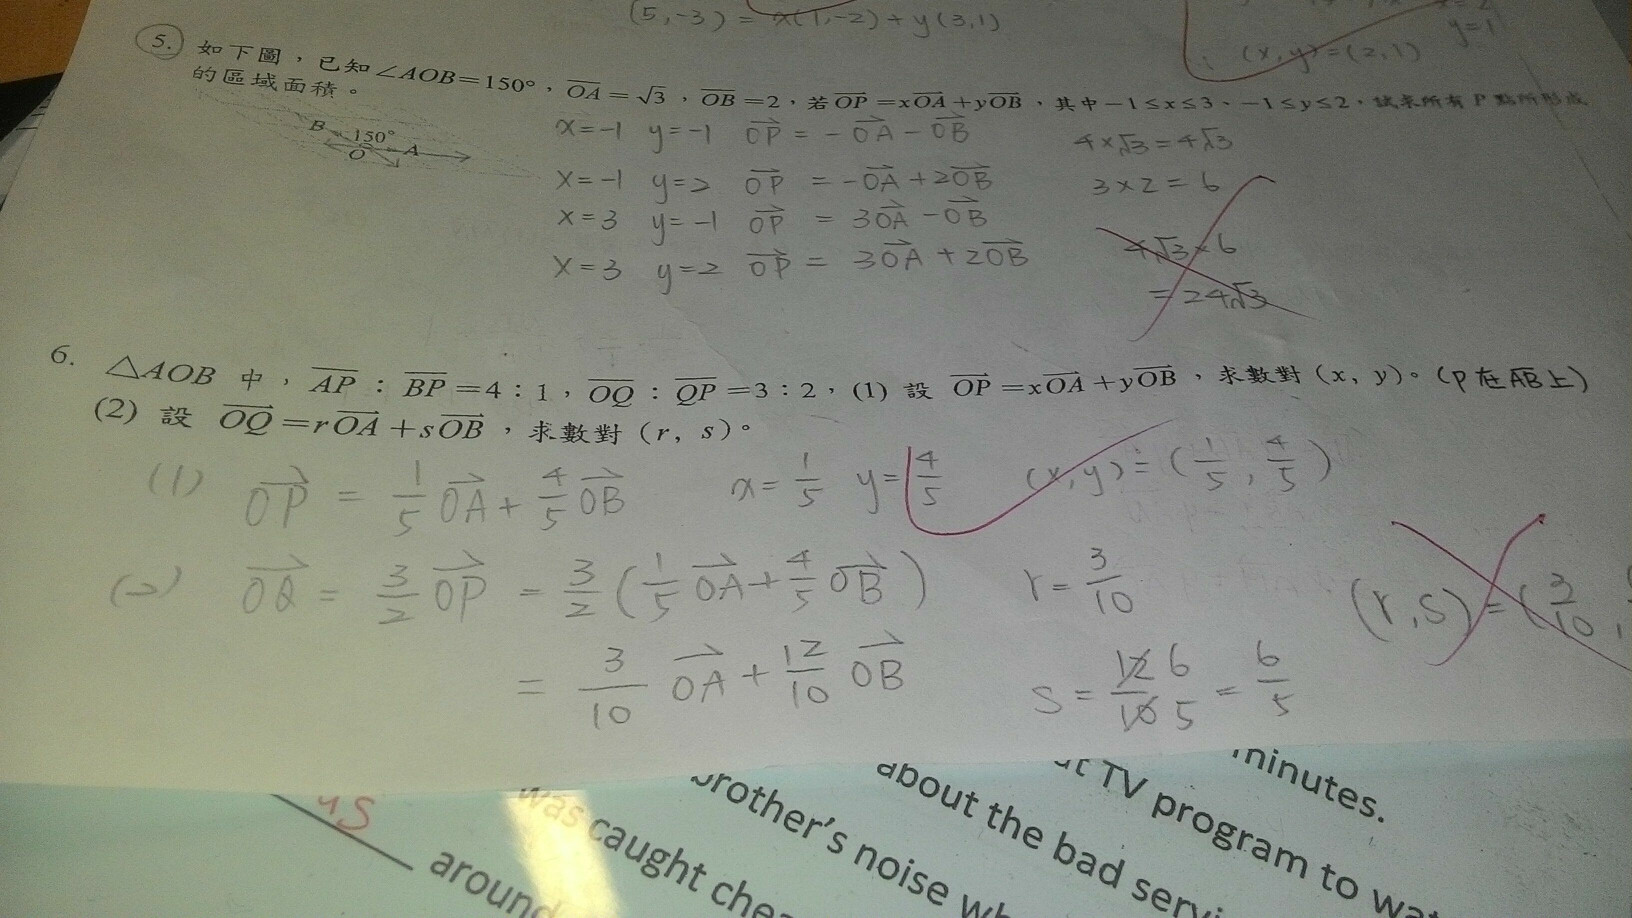 (5,-3) = x(1,-2) + y(3,1)
y=1
(x,y)=(2,1)
5. 如下圖，已知∠AOB=150°，OA=√3，OB=2，若OP=xOA+yOB，其中－1≤x≤3、－1≤y≤2，試求所有P點所形成
的區域面積。
B 150° A
O
x=-1 y=-1 OP = -OA-OB
x=-1 y=2 OP = -OA+2OB
x=3 y=-1 OP = 3OA-OB
x=3 y=2 OP = 3OA+2OB
4×√3=4√3
3×2=6
4√3×6
=24√3
6. △AOB 中，AP：BP=4：1，OQ：QP=3：2，(1) 設 OP=xOA+yOB，求數對(x, y)。(P在AB上)
(2) 設 OQ=rOA+sOB，求數對(r, s)。
(1) OP = 1/5 OA + 4/5 OB x=1/5 y=4/5 (x,y)=(1/5, 4/5)
(2) OQ = 3/2 OP = 3/2 (1/5 OA + 4/5 OB) r=3/10 (r,s)=(3/10,
= 3/10 OA + 12/10 OB s = 12/10 6/5 = 6/5
us
around
was caught
brother's noise
about the bad
TV program to
minutes.